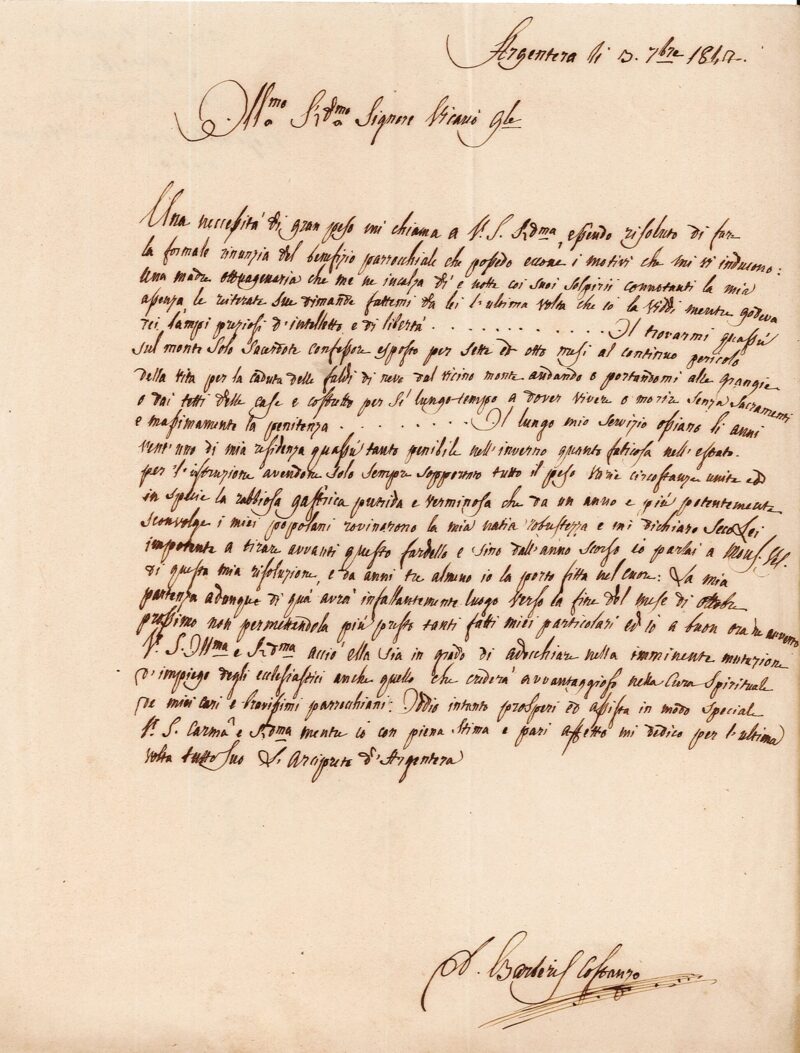 Argentera li 3. 7bre 184
Ill.mo R.dmo Signore Vicario Gle
Una neccessità di gran peso mi chiama a V. S. R.dma, essendo risoluto di fare
la formale rinunzia del benefizio parrocchiale che possedo eccone i motivi che mi vi inducono:
una madre ottuagenaria che me ne incalza dì e notte coi suoi sospirii connotanti la mia
assenza le reiterate sue dimande fattemi da lei l'ultima volta che io la vidi mentre godeva
rei lampi preziosi d'intelletto e di libertá . . . . . . . . . . . Il trovarmi quassú
sul monte solo Sacerdote confessore esposto per sette ed otto mesi al continuo pericolo
della vita per la caduta delle faldi di neve dal vicino monte andando o portandomi alle grangie
o dai tetti delle case e costretto per sí lungo tempo a dover vivere o morire senza Sacramenti
e massimamente la penitenza . . . . . . . . Il lungo mio servizio ossiano li anni
vent'uno di mia residenza quassú tanto penibile nell'inverno quanto faticosa nell'estate.
per l'istruzione avendone solo sempre sopportato tutto il peso varie circostanze unite ed
in specie la rabbiosa gastrica putrida e verminosa che da un anno e piú potentemente
sconvolge i miei popolani rovinarono la mia natia robustezza e mi dichiaro seco Lei
impotente a tirare avvanti questo fardello e sino dall'anno scorso io parlai a Mons. Ves.
di questa mia risoluzione, e da anni tre almeno io la porto fitta nel cuore: La mia
partenza adunque di quá avrá infallantemente luogo verso la fine del mese di Ottobre
prossimo non permettendola piú presto tanti fatti miei particolari ed io a buon ora ne avverto
V. S. Ill.ma e R.dma acció ella sia in grado di adocchiare nella imminente mutazione
d'impiego degli ecclesiastici anche quello che crederá avvantaggioso nella Cura Spirituale
de miei cari e bravissimi parrocchiani. Iddio intanto prosperi ed assista in modo speciale
V. S. Carma e R.dma mentre io con piena stima e pari affetto mi dedico per l'ultima
volta tutto suo L'Arciprete d'Argentera
D. Barberis Costanzo